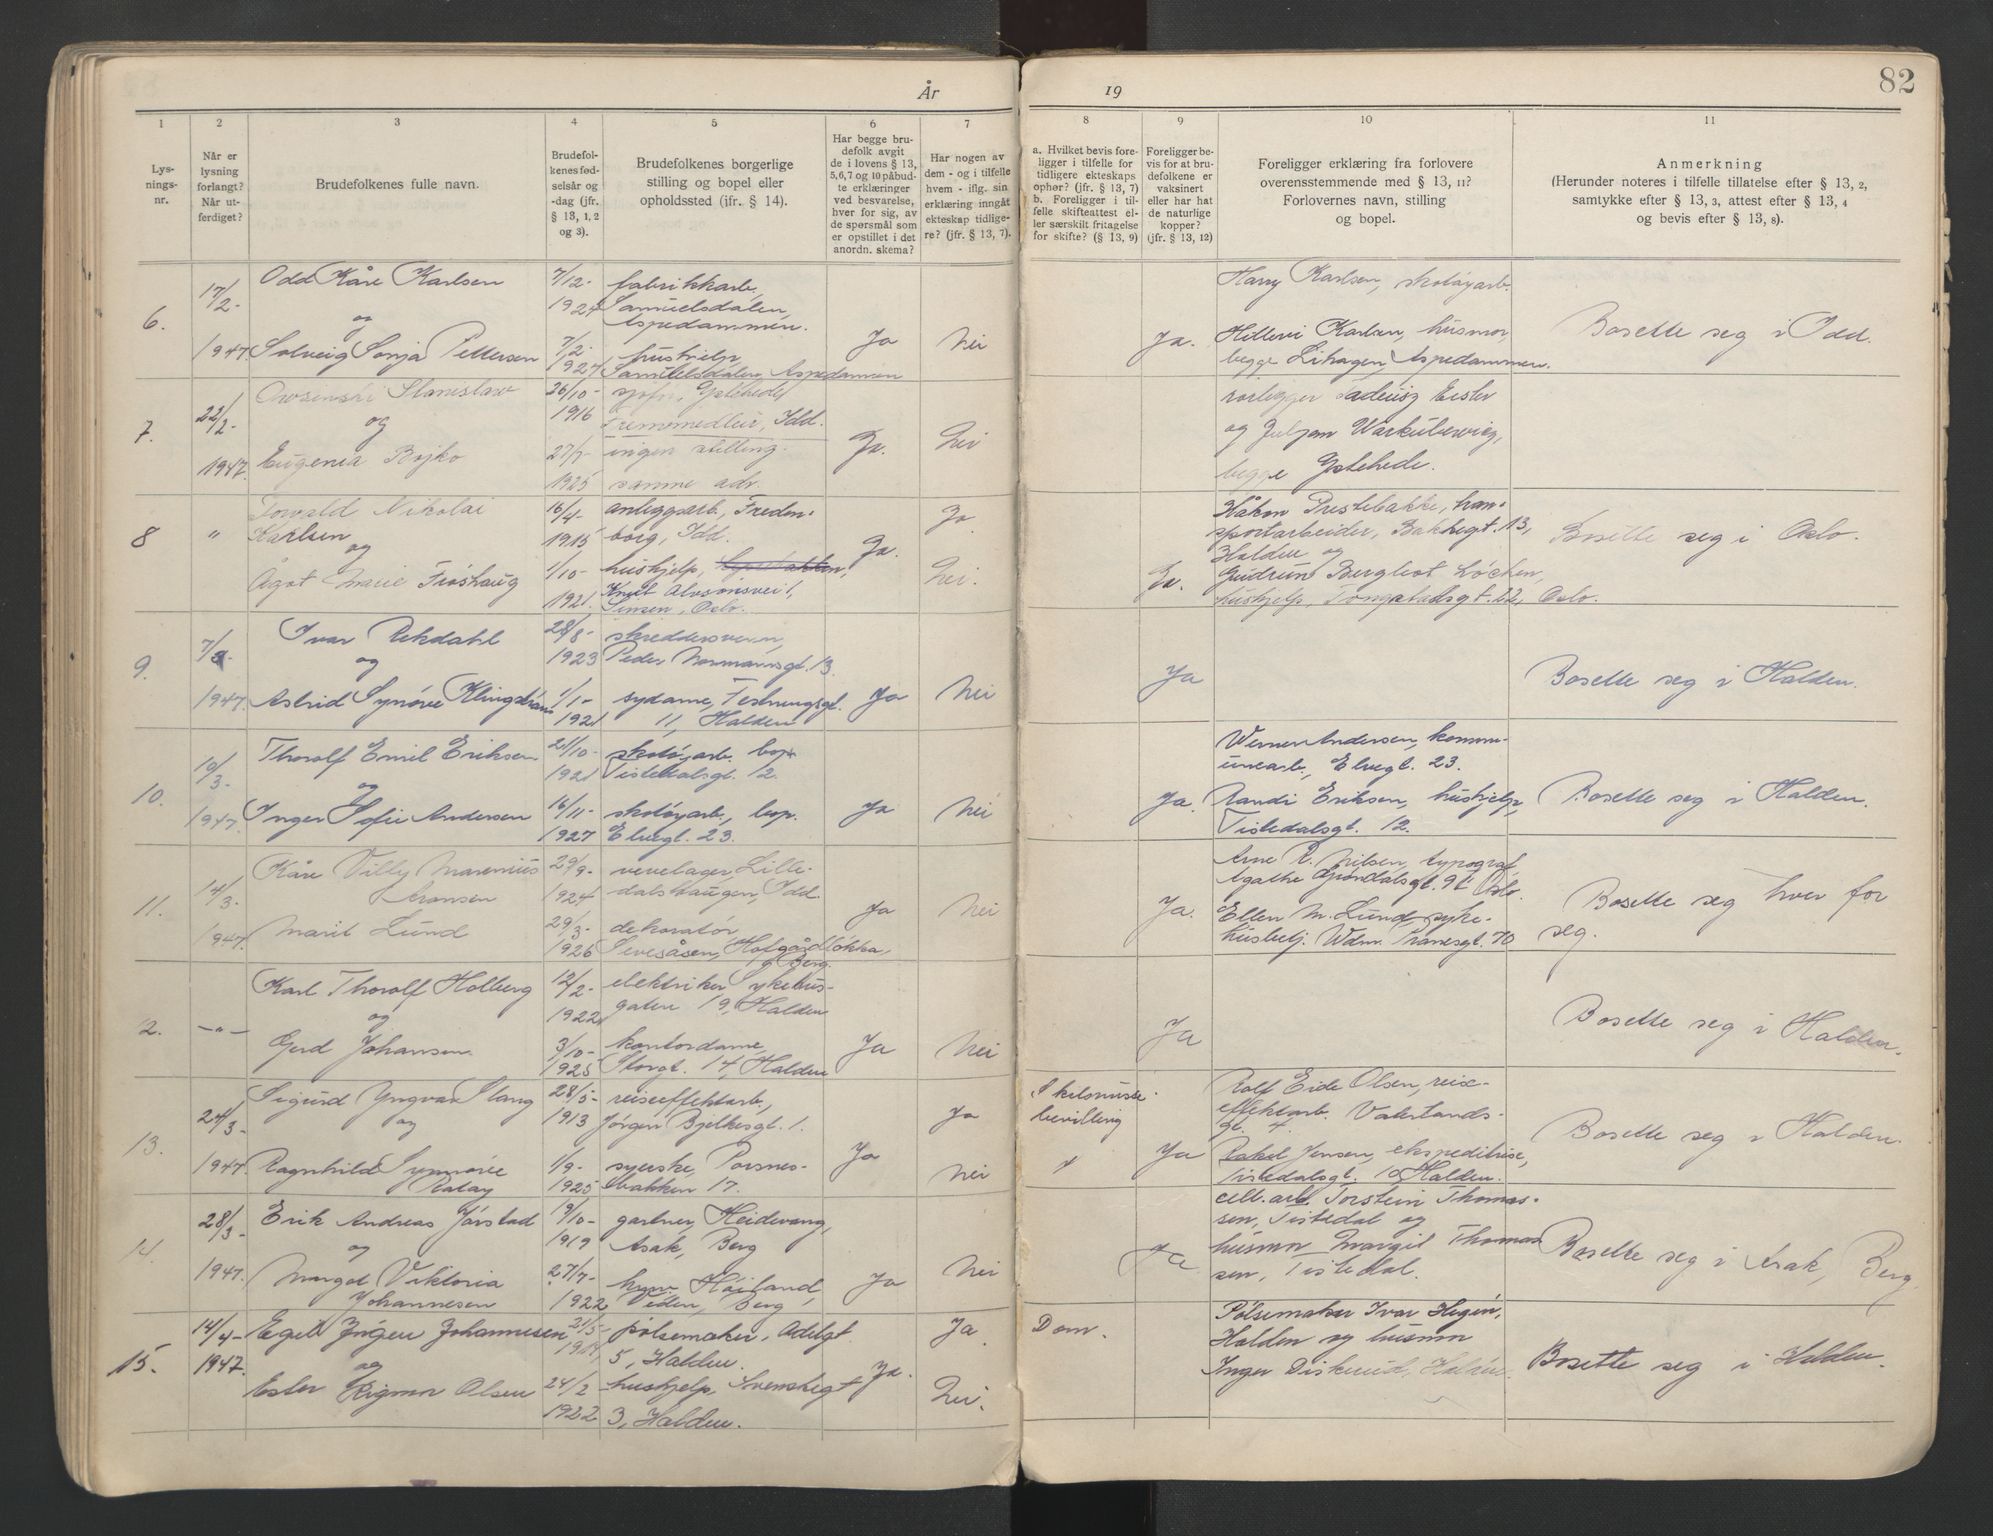 År
19
82
1
2
3
4
5
6
7
8
9
10
11
Lys-
nings-
nr.
Når er
lysning
forlangt?
Når ut-
ferdiget?
Brudefolkenes fulle navn.
Brudefol-
kenes fød-
selsår og
-dag (jfr.
§ 13, 1, 2
og 3).
Brudefolkenes borgerlige
stilling og bopel eller
opholdssted (ifr. § 14).
Har begge bru-
defolk avgit
de i lovens § 13,
5,6,7 og 10 påbud-
te erklæringer
ved besvarelse,
hver for sig, av
de spørsmål som
er opstillet i det
anordn. skema?
Har nogen av
dem - og i tilfelle
hvem - iflg. sin
erklæring inngåt
ekteskap tidlige-
re? (jfr. § 13, 7).
a. Hvilket bevis fore-
ligger i tilfelle for
tidligere ekteskaps
ophør? (jfr. § 13, 7)
b. Foreligger i til-
felle skifteattest el-
ler særskilt fritagelse
for skifte? (§ 13, 9)
Foreligger be-
vis for at bru-
defolkene er
vaksinert
eller har hat
de naturlige
kopper?
(jfr. § 13, 12)
Foreligger erklæring fra forlovere
overensstemmende med § 13, 11?
Forlovernes navn, stilling
og bopel.
Anmerkning
(Herunder noteres i tilfelle tillatelse efter § 13, 2,
samtykke efter § 13, 3, attest efter § 13, 4
og bevis efter § 13, 8).
6.
17/2-
1947
Odd Kåre Karlsen
og
Solveig Sonja Pettersen
7/12-
1924
7/2-
1927
fabrikkarb.,
Samuelsdalen,
Aspedammen.
hushjelp
Samuelsdalen, Aspedammen
Ja
Nei
Ja.
Harry Karlsen, skotøyarb.
Karlsen, husmor,
begge Lihagen, Aspedammen.
Bosette seg i Idd.
7.
22/2-
1947.
Stanislaw
og
Eugenia Bojko
26/10-
1916
27/7-
1925
Ystehede
Idd.
ingen stilling.
samme adr.
Ja.
Nei
rørlegger Tadeusz
og Juljan
begge Ystehede.
8
"
Torvald Nikolai
Karlsen
og
Ågot Marie Frøshaug
16/4-
1915
1/10-
1921
anleggsarb., Freden-
borg, Idd.
hushjelp,
Sinsen, Oslo.
Ja.
Ja.
Nei.
Ja.
Håkon Prestebakke, tran-
sportarbeider, Bakkegt. 13,
Halden og
Gudrun Bergliot Løcken,
hushjelp, Oslo.
Bosette seg i Oslo.
9.
7/3-
1947.
Ivar Rekdahl
og
Astrid Synøve
28/8-
1923
1/1-
1921
skreddersvenn,
Peder Normannsgt. 13
sydame, Festningsgt.
11, Halden
Ja
Nei
Ja
Bosette seg i Halden.
10.
10/3-
1947.
Thorolf Emil Eriksen
og
Inger Sofie Andersen
21/10-
1921
16/11-
1927
skotøyarb. bop.
Tistedalsgt. 12.
skotøyarb., bop.
Elvegt. 23.
Ja
Nei
Ja.
Werner Andersen, kommu-
unearb., Elvegt. 23.
Randi Eriksen, hushjelp,
Tistedalsgt. 12.
Bosette seg i Halden.
11.
14/3.
1947.
Kåre Villy Marenius
Aronsen
Marit Lund
29/9-
1924
29/3-
1926
Lille-
dalshaugen, Idd.
dekoratør
Berg.
Ja
Nei
Ja.
Arne R. Nilsen, typograf
Agathe Grøndalsgt. 9 Oslo.
Ellen M. Lund syke-
husbetj. Wdm. Tranesgt. 70
Bosette seg hver for
seg.
2.
—"—
Karl Thorolf Holberg
og
Gerd Johansen.
12/2-
1922
3/10-
1925
elektriker Sykehus-
gaten 19, Halden
kontordame,
Storgt. 14, Halden
Ja
Nei
Ja
Bosette seg i Halden.
13.
24/3-
1947.
Sigurd Yngvar Stang
og
Ragnhild Synnøve
28/5-
1913
1/9-
1925
reiseeffektarb.,
Jørgen Bjelkesgt. 1.
syerske, Porsnes-
bakken 17.
Ja
Ja
Nei
Skilsmisse
bevilling
Ja
Rolf Eide Olsen, reise-
effektarb. Vaterlands-
gt. 4.
Rakel Jensen, ekspeditrise,
Tistedalsgt. 10 Halden.
Bosette seg i Halden.
14.
28/3-
1947.
Erik Andreas Jørstad
og
Margot Viktoria
Johannesen
9/10-
1919
27/7-
1922
gartner, Heidevang,
Asak, Berg
Høiland,
Veden, Berg
Ja
Nei
Ja
cell.arb. Torstein Thomas-
sen, Tistedal og
husmor Margit Thomas-
sen, Tistedal.
Bosette seg i Asak, Berg.
15.
14/4-
1947.
Egil Johannesen
og
Ester Rigmor Olsen
21/5-
24/2
1922
pølsemaker, Adelgt.
5, Halden.
hushjelp, Svenskegt
3, Halden.
Ja.
Ja
Nei.
Dom.
Pølsemaker Ivar
Halden og husmor
Inger Diskerud, Halden.
Bosette seg i Halden.